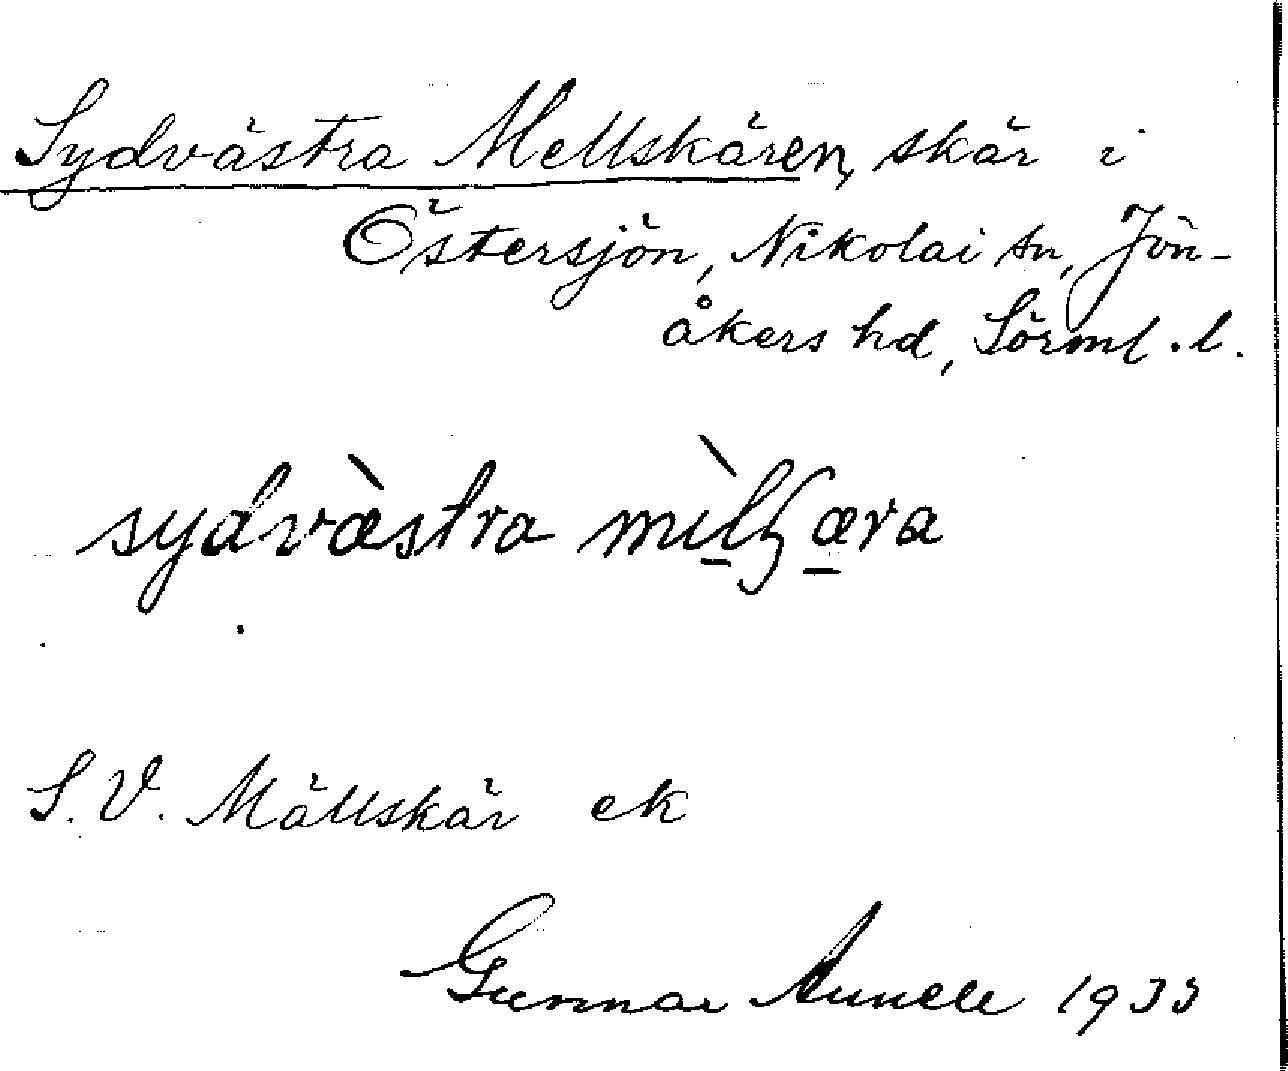 Sydvästra Mellskären, skär i
Östersjön, Nikolai sn, Jön-
åkers hd, Sörml. l.
sydvæ̀stra
S. V. Mällskär ek
Gunnar 1933